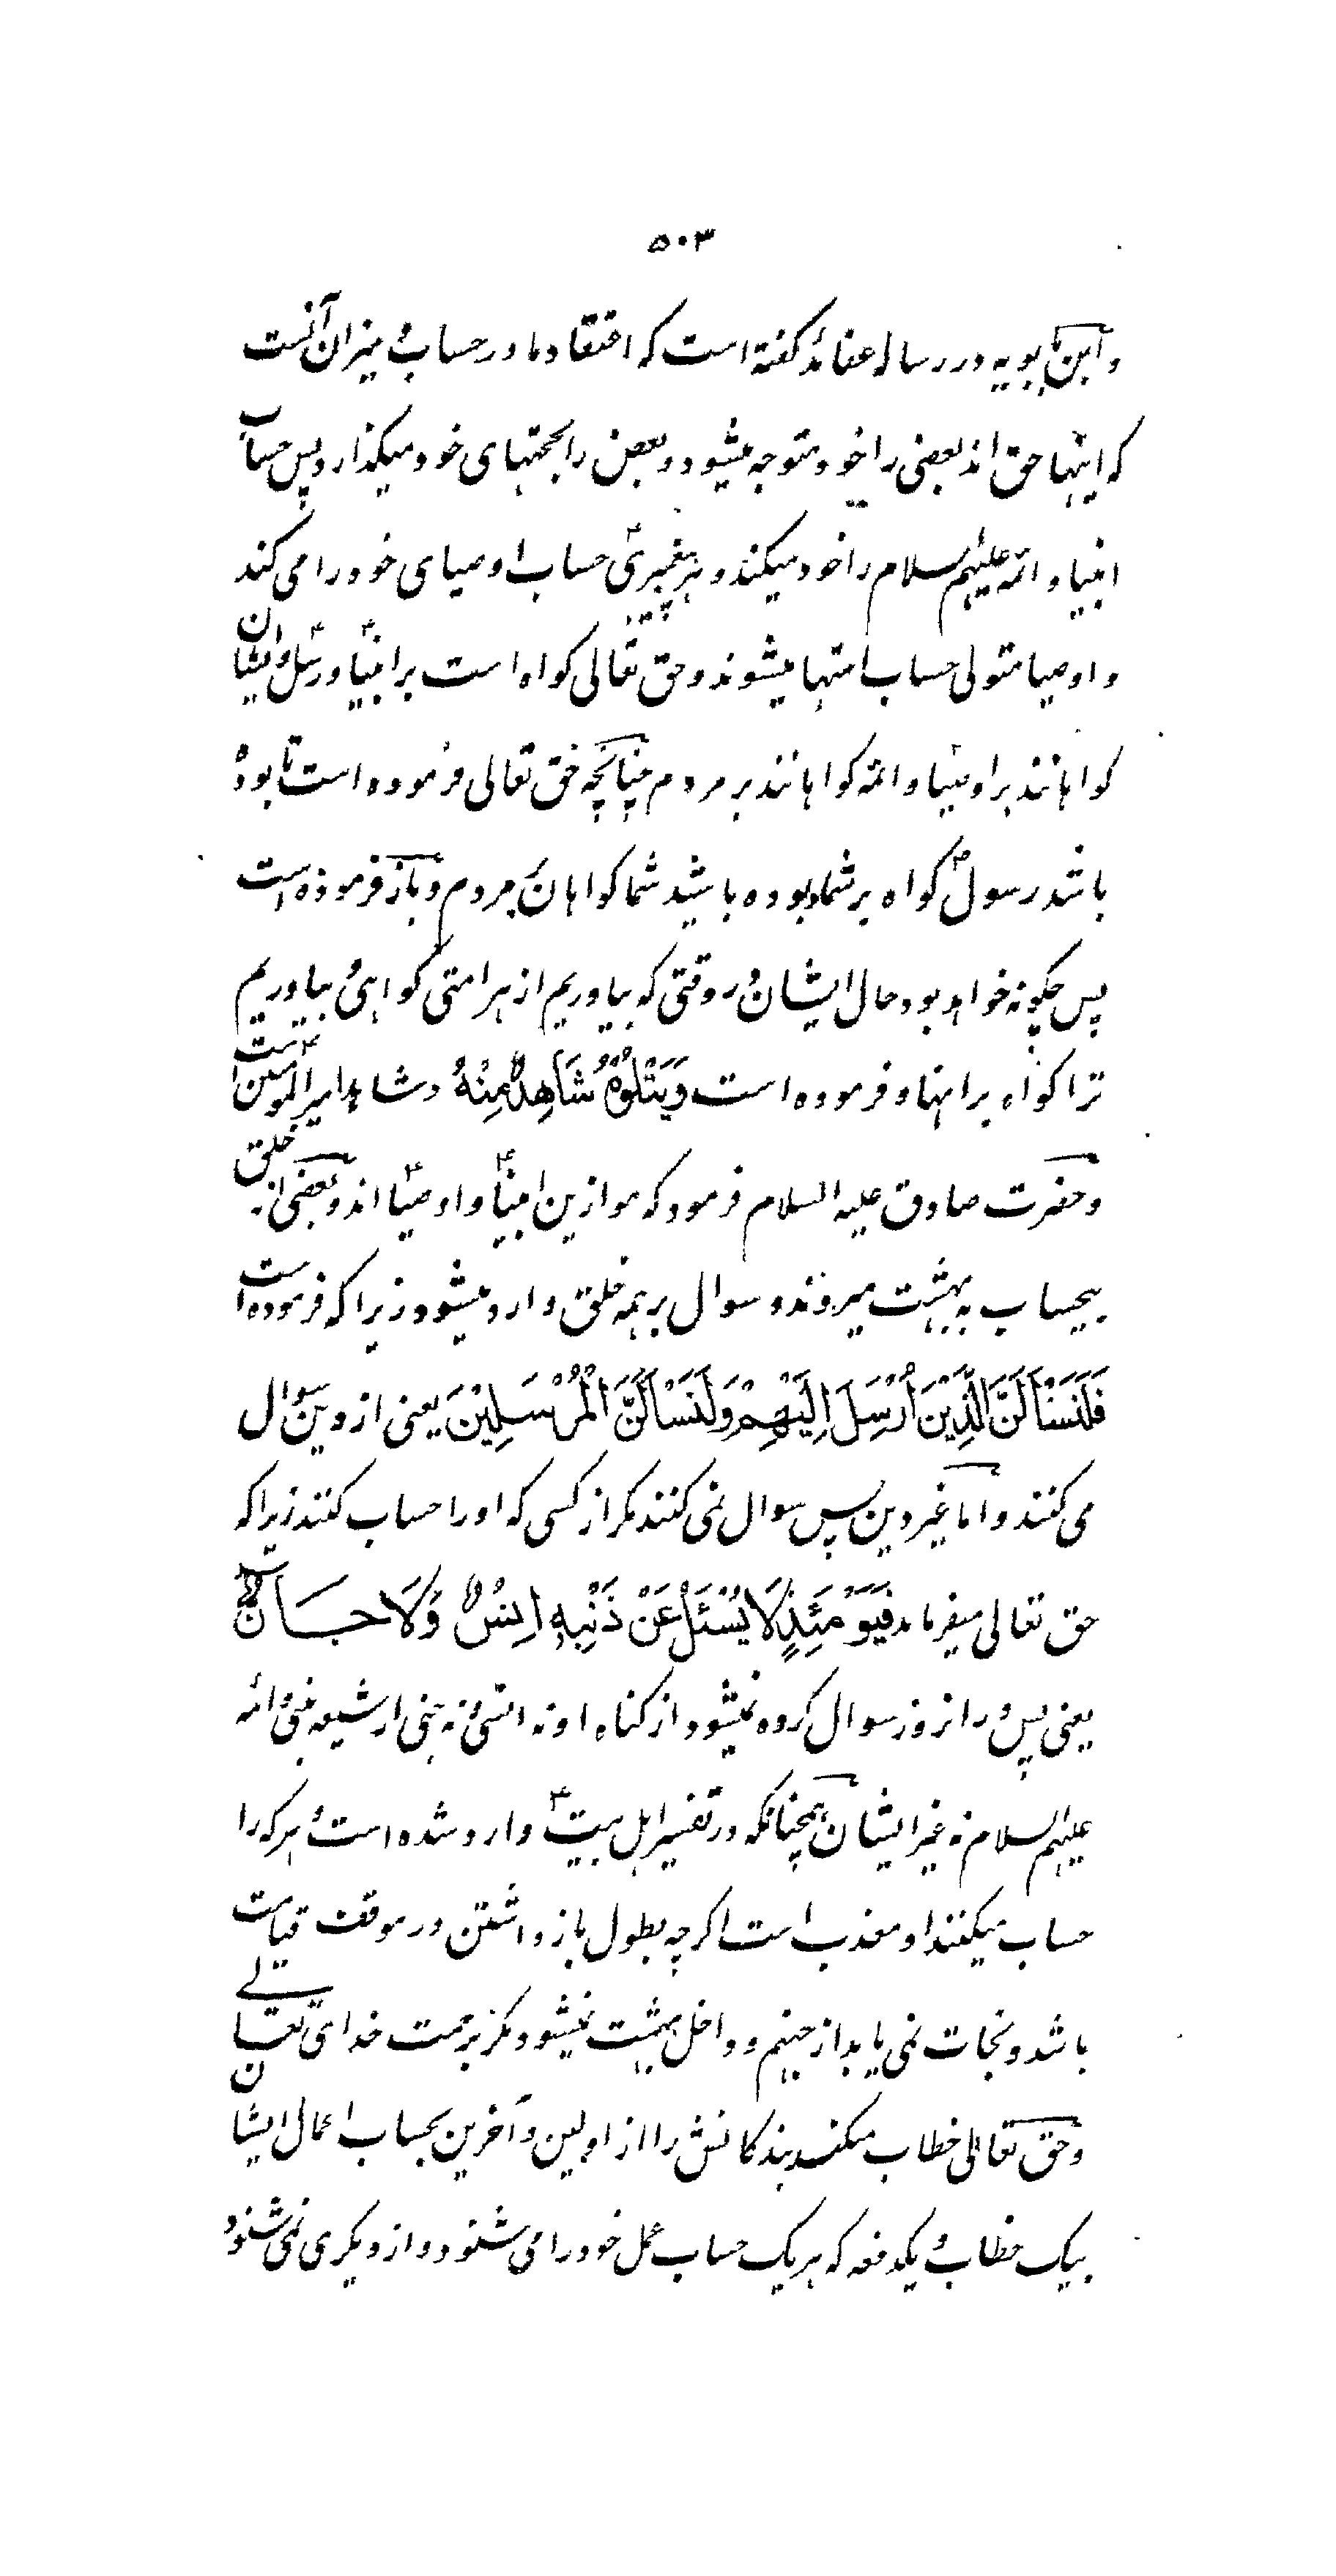 ۵۰۳
و ابن بابویه در رساله عقائد گفته است که اعتقاد ما در حساب و میزان آنست
که اینها حق اند بعضی را خود متوجه میشود و بعض را بحجتهای خود میگذارد پس حساب
انبیا و ائمه علیهم السلام را خود میکند و هر پیغمبری حساب اوصیای خود را می کند
و اوصیا متولی حساب امتها میشوند و حق تعالی کواه است بر انبیا و رسل و ایشان
کواهانند بر اوصیا و ائمه کواهانند بر مردم چنانچه حق تعالی فرموده است تا بوده
باشد رسول کواه بر شما و بوده باشید شما کواهان بر مردم و باز فرموده است
پس چکونه خواهد بود حال ایشان در وقتی که بیاوریم از هر امتی کواهی و بیاوریم
ترا کواه بر اینها و فرموده است وَيَتْلُوهُ شَاهِدٌ مِنْهُ و شاهد امیر المومنین است
و حضرت صادق علیه السلام فرمود که موازین انبیا و اوصیا اند و بعضی از خلق
بیحساب به بهشت میروند و سوال بر همه خلق وارد میشود زیرا که فرموده است
فَلَنَسْأَلَنَّ الَّذِيْنَ اُرْسِلَ اِلَيْهِمْ وَلَنَسْأَلَنَّ الْمُرْسَلِيْنَ یعنی از دین سوال
می کنند و اما غیر دین پس سوال نمی کنند مکر از کسی که او را حساب کنند زیرا که
حق تعالی میفرماید فَيَوْمَئِذٍ لَا يُسْئَلُ عَنْ ذَنْبِهٖ اِنْسٌ وَلَا جَانٌّ
یعنی پس در انروز سوال کرده نمیشود از کناه او نه انسی و نه جنی از شیعه نبی و ائمه
علیهم السلام نه غیر ایشان همچنانکه در تفسیر اهل بیت وارد شده است و هر که را
حساب میکنند او معذب است اکرچه بطول باز داشتن در موقف قیامت
باشد و نجات نمی یابد از جهنم و داخل بهشت نمیشود مکر برحمت خدای تعالے
و حق تعالی خطاب میکند بندکانش را از اولین و آخرین بحساب اعمال ایشان
بیک خطاب و یکدفعه که هر یک حساب عمل خود را می شنود و از دیکری نمی شنود